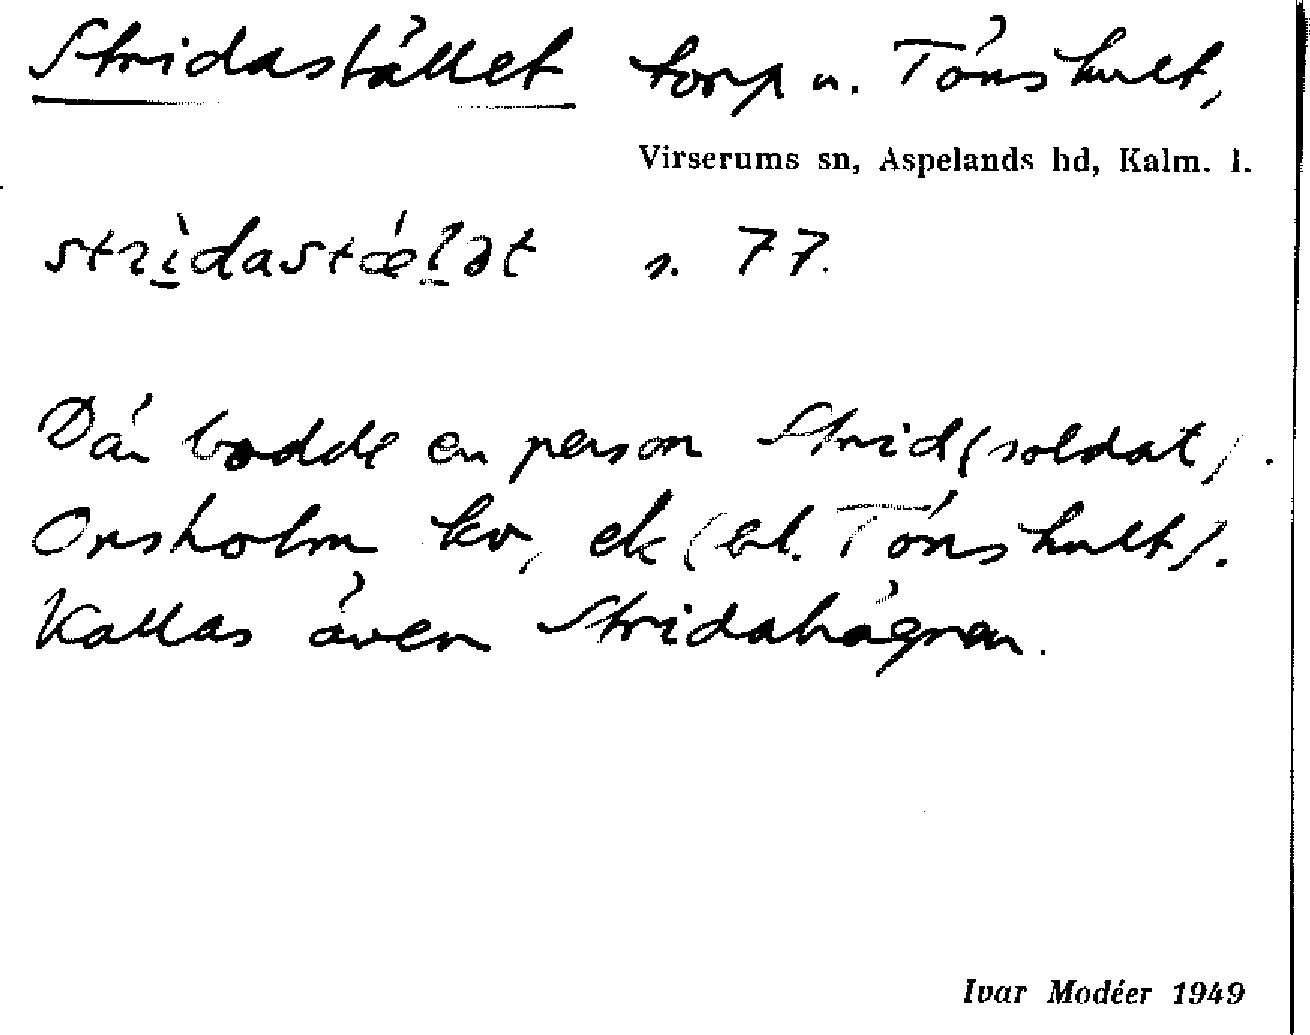 Stridastället torp u. Tönshult,
Virserums sn, Aspelands hd, Kalm. l.
strìdastǽlət s. 77.
Där bodde en person Strid (soldat).
Onsholm kv, ek (bl. Tönshult).
Kallas även Stridahägnen.
Ivar Modéer 1949